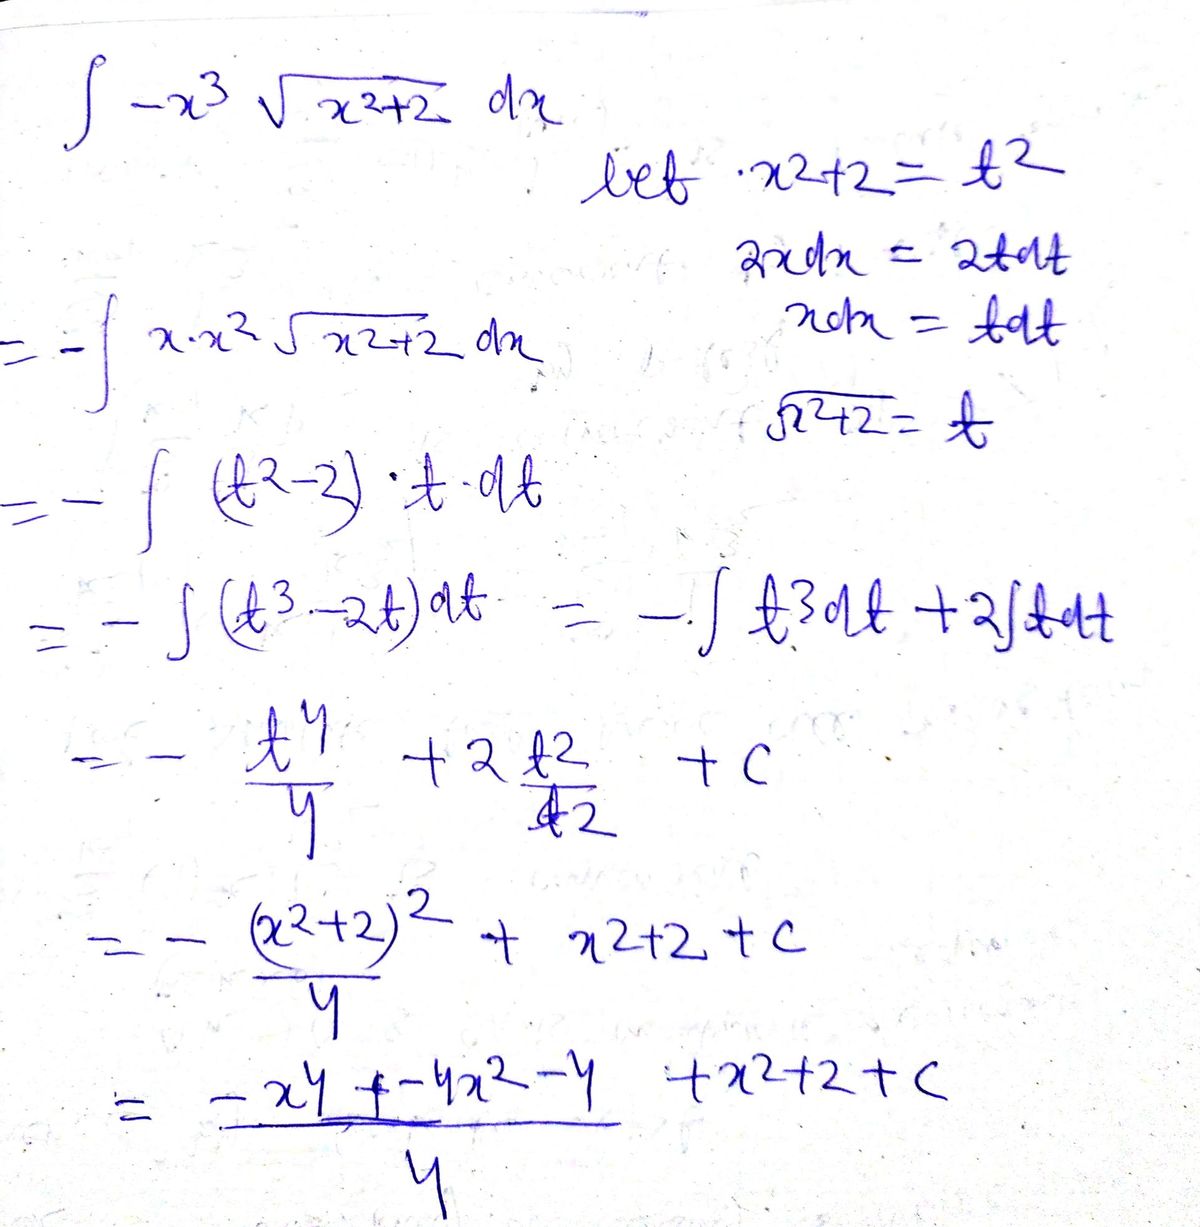 ∫ -x³ √(x²+2) dx
let x²+2 = t²
2xdx = 2tdt
xdx = tdt
√(x²+2) = t
= -∫ x·x² √(x²+2) dx
= - ∫ (t²-2) · t · dt
= - ∫ (t³ - 2t) dt = - ∫ t³dt + 2∫tdt
= - t⁴/4 + 2 t²/2 + c
= - (x²+2)²/4 + x²+2 + c
= (-x⁴ - 4x² - 4)/4 + x²+2 + c